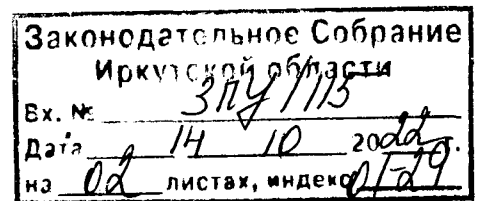 Законодательное Собрание
Иркутской области
Вх. №
Дата 14 10 2022 г.
на 02 листах, индекс 01-29